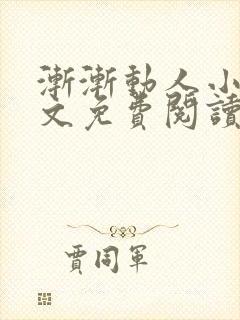 漸漸動人小
文免費閱讀
賈同軍